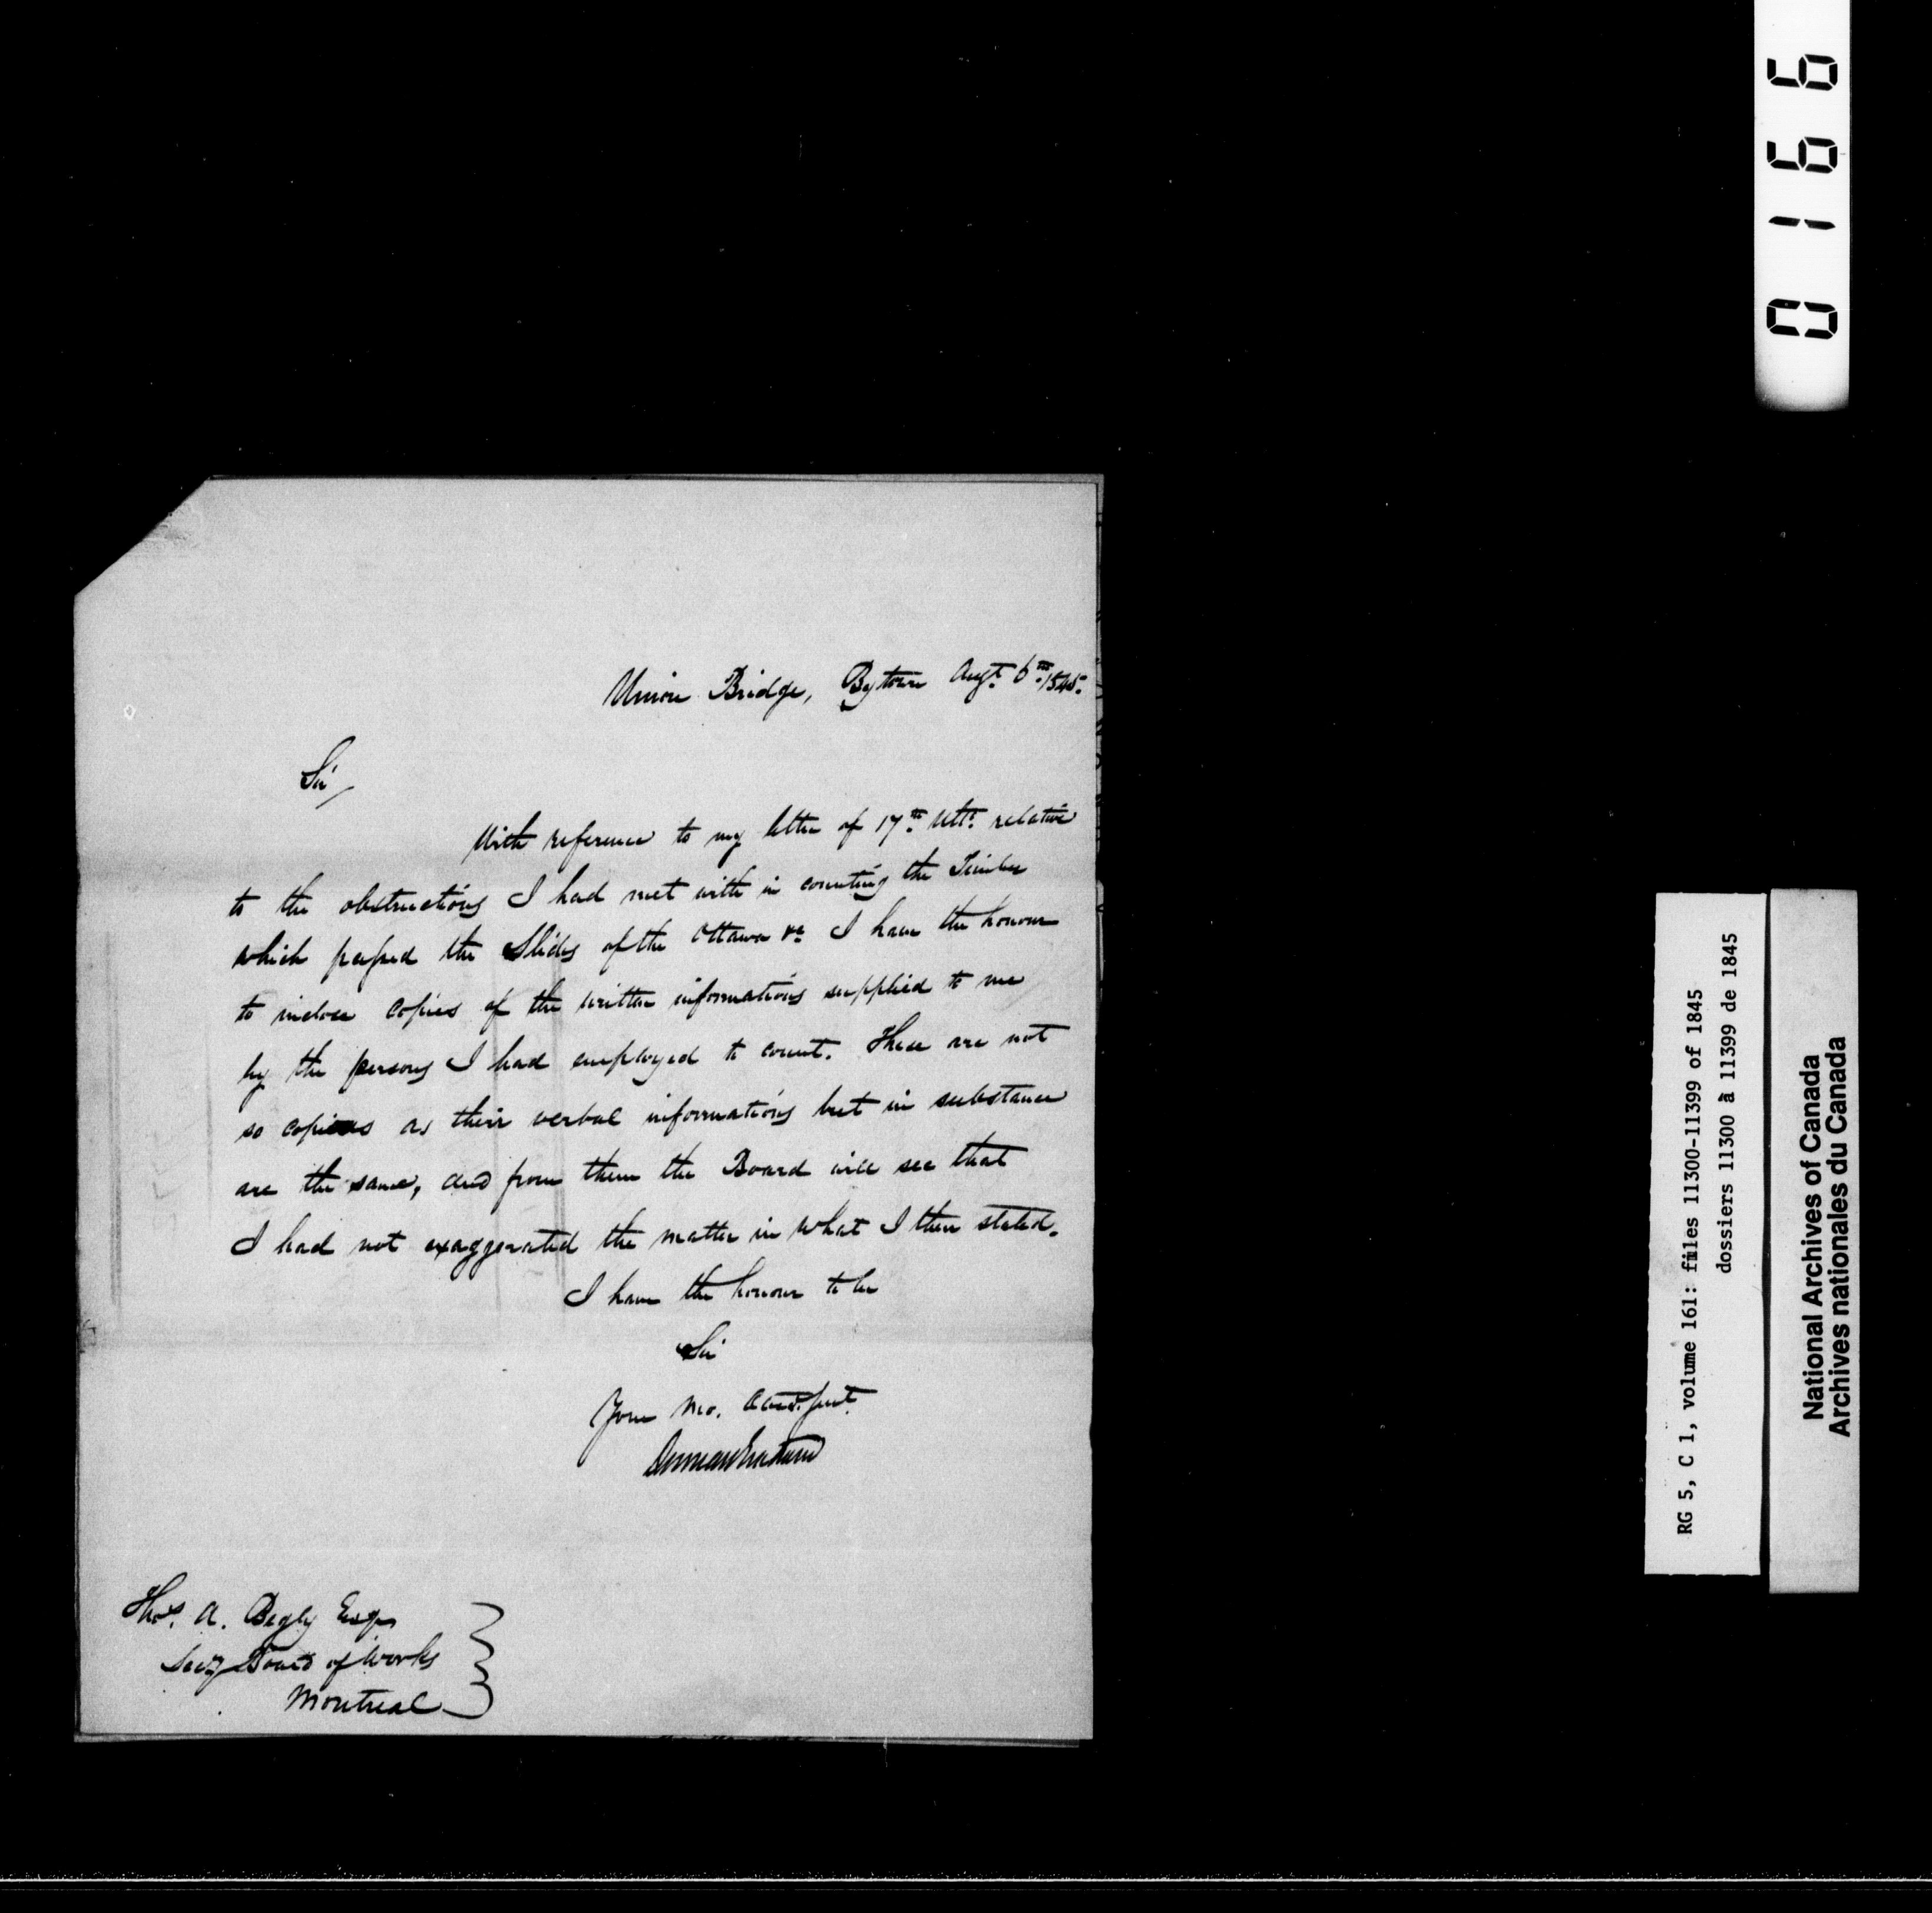 Union Bridge, Bytown Augt. 6th. 1845.
Sir
With reference to my letter of 17th. Ulto. relative
to the obstructions I had met with in counting the Timber
which passed the Slides of the Ottawa &c I have the honour
to inclose copies of the written informations supplied to me
by the persons I had employed to count. These are not
so copious as their verbal informations but in substance
are the same, and from them the Board will see that
I had not exaggerated the matter in what I then stated.
I have the honour to be
Sir
Your Mo. Obed. Servt.
Duncan Graham
Thos. A. Begly Esqr
Secy Board of Works
Montreal
0166
RG 5, C 1, volume 161: files 11300-11399 of 1845
dossiers 11300 à 11399 de 1845
National Archives of Canada
Archives nationales du Canada